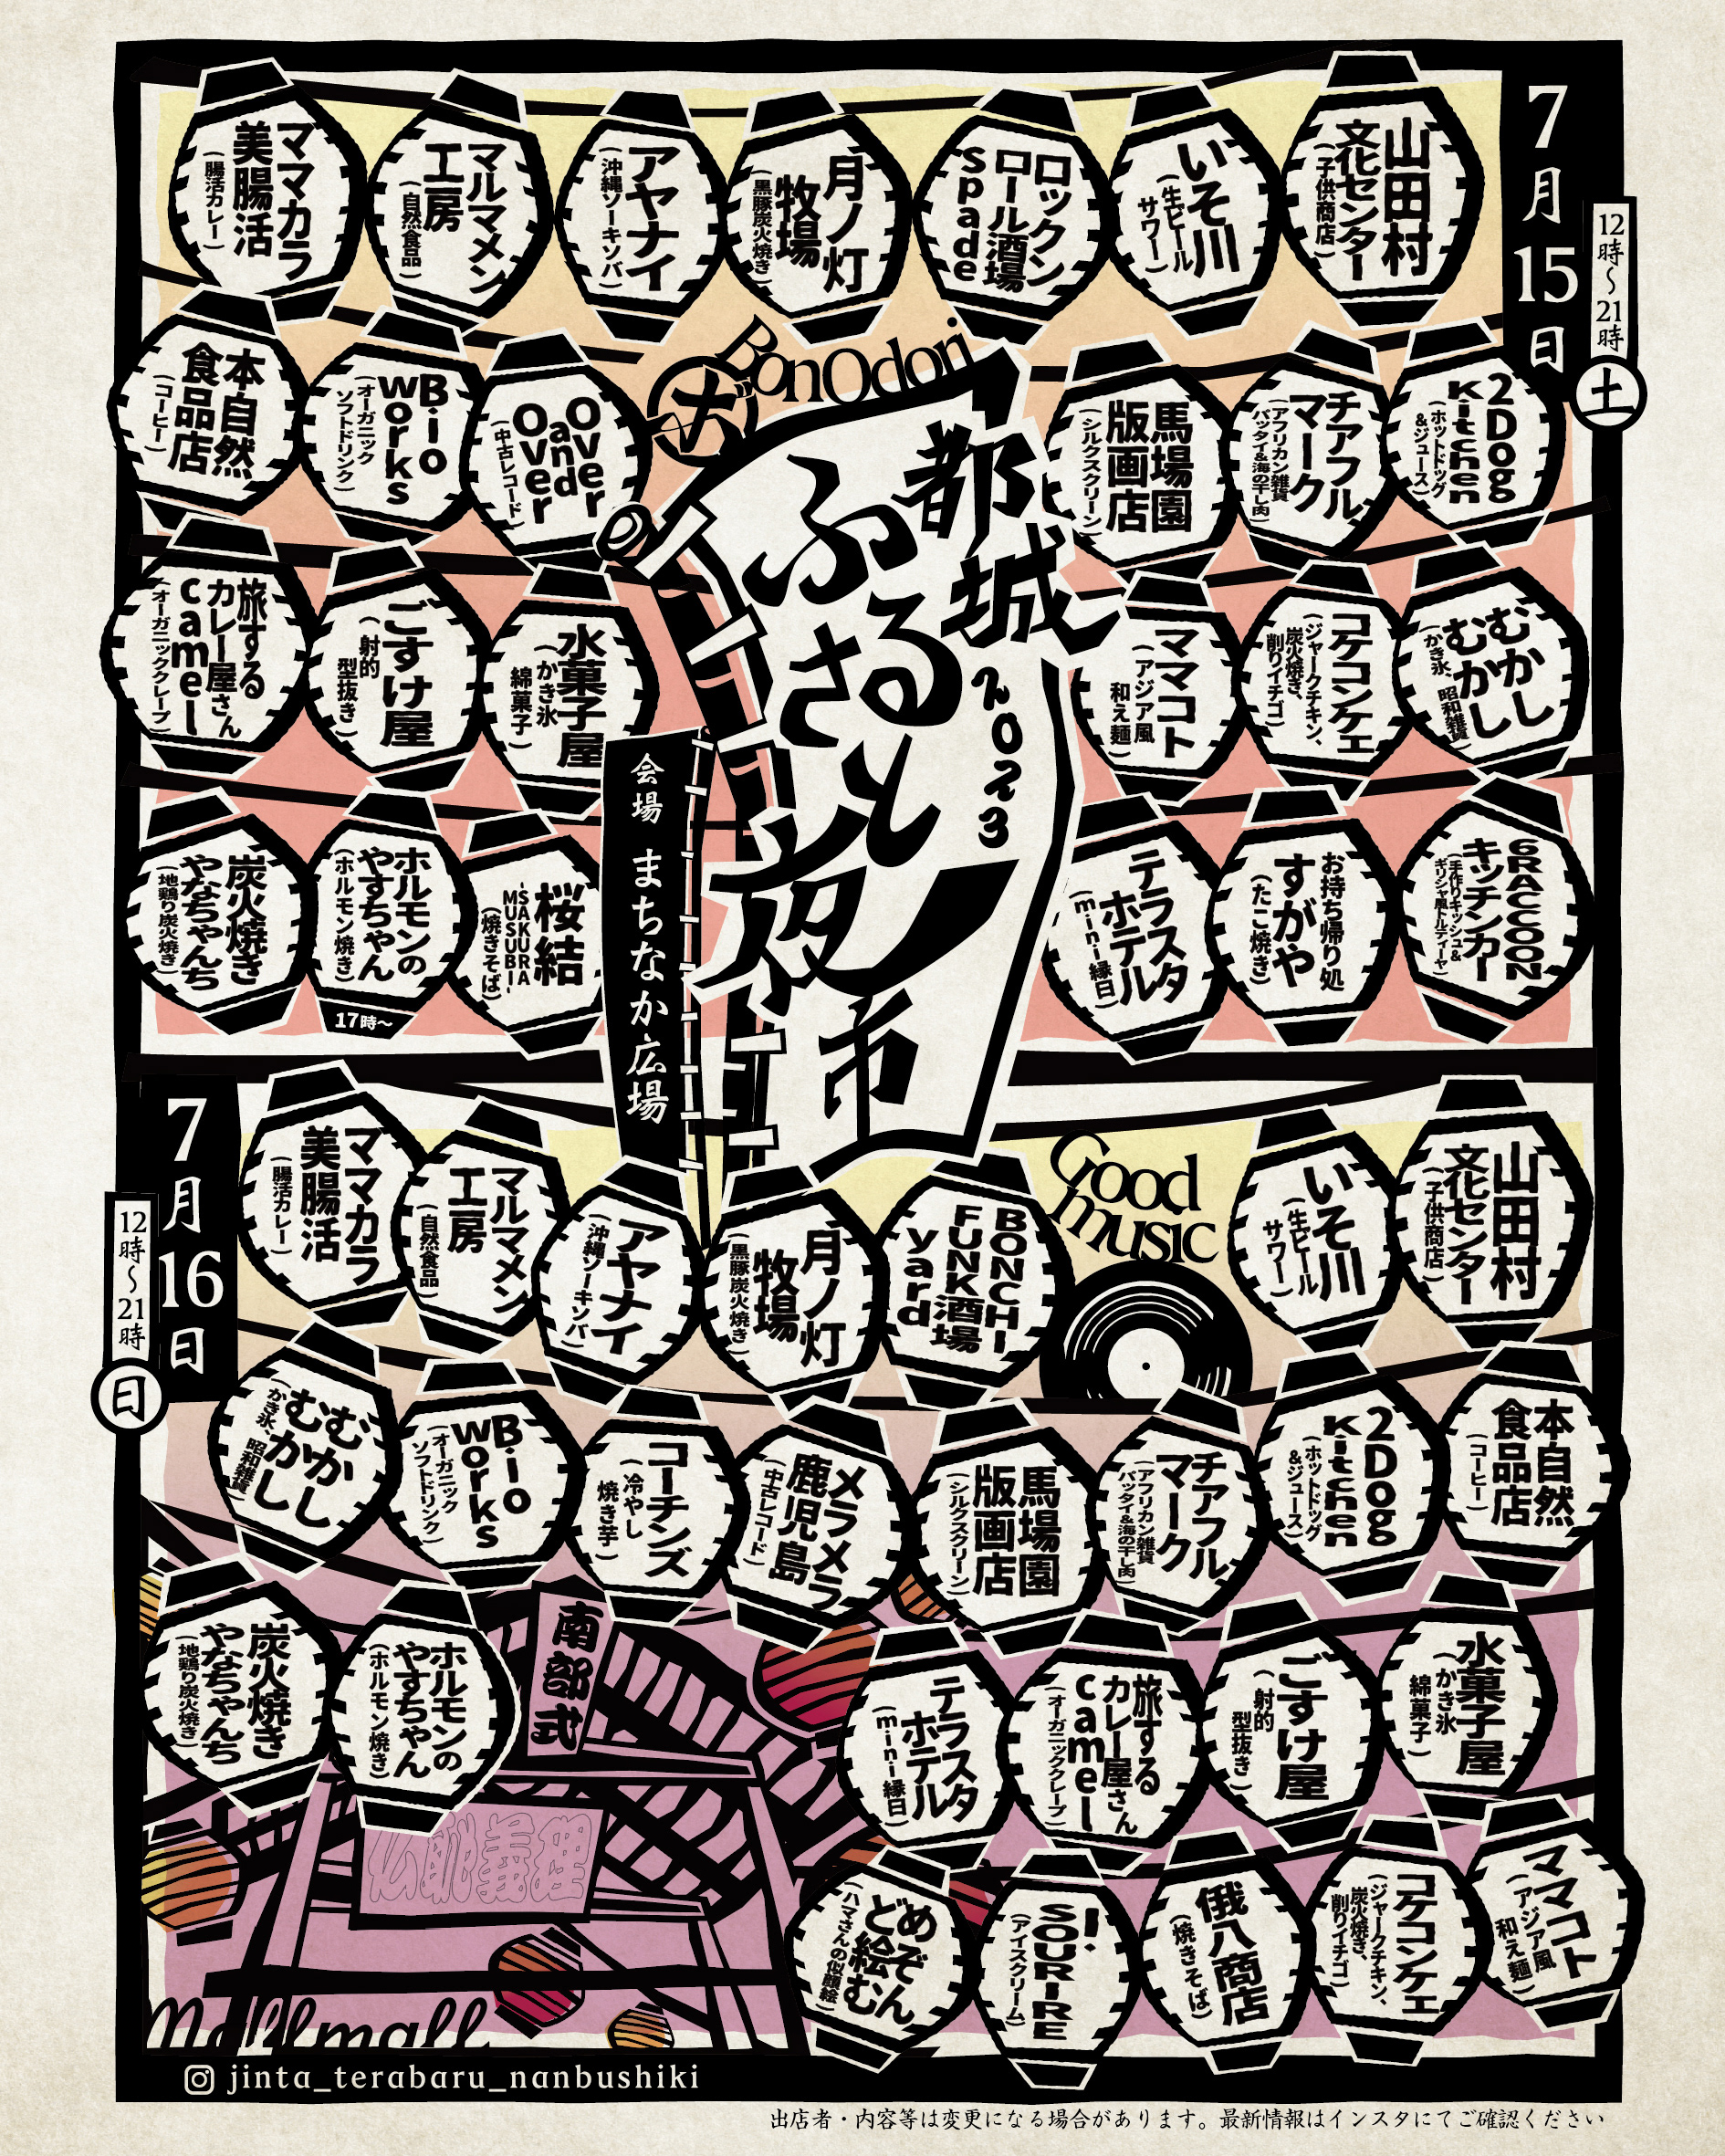 7月15日
12時〜21時
土
山田村
文化センター
(子供商店)
いそ川
(生ビール
サワー)
ロックン
ロール酒場
spade
月ノ灯
牧場
(黒豚炭火焼き)
アヤナイ
(沖縄ソーキソバ)
マルマメン
工房
(自然食品)
ママカラ
美腸活
(腸活カレー)
2Dogg
kitchen
(ホットドッグ
&ジュース)
チアフル
マーク
(アフリカン雑貨
バッタイ&海の干し肉)
馬場園
版画店
(シルクスクリーン)
BonOdori
Over
and
Over
(中古レコード)
Bio
works
(オーガニック
ソフトドリンク)
本自然
食品店
(コーヒー)
都城
ふるさと
夜市
2023
会場 まちなか広場
むかし
むかし
(かき氷、昭和雑貨)
コケコンケェ
(ジャークチキン、
炭火焼き、
削りイチゴ)
ママコト
(アジア風
和え麺)
水菓子屋
(かき氷
綿菓子)
ごすけ屋
(射的
型抜き)
旅する
カレー屋さん
camel
(オーガニッククレープ)
6RACCOON
キッチンカー
(手作りキッシュ&
ギリシャ風トルティーヤ)
お持ち帰り処
すがや
(たこ焼き)
テラスタ
ホテル
(mini縁日)
桜結
-SAKURA
MUSUBI-
(焼きそば)
ホルモンの
やすちゃん
(ホルモン焼き)
17時〜
炭火焼き
やなちゃんち
(地鶏り炭火焼き)
7月16日
12時〜21時
日
山田村
文化センター
(子供商店)
いそ川
(生ビール
サワー)
Good
music
BONCHI
FUNK酒場
yard
月ノ灯
牧場
(黒豚炭火焼き)
アヤナイ
(沖縄ソーキソバ)
マルマメン
工房
(自然食品)
ママカラ
美腸活
(腸活カレー)
本自然
食品店
(コーヒー)
2Dogg
kitchen
(ホットドッグ
&ジュース)
チアフル
マーク
(アフリカン雑貨
バッタイ&海の干し肉)
馬場園
版画店
(シルクスクリーン)
メラメラ
鹿児島
(中古レコード)
コーチンズ
(冷やし
焼き芋)
Bio
works
(オーガニック
ソフトドリンク)
むかし
むかし
(かき氷、昭和雑貨)
水菓子屋
(かき氷
綿菓子)
ごすけ屋
(射的
型抜き)
旅する
カレー屋さん
camel
(オーガニッククレープ)
テラスタ
ホテル
(mini縁日)
南部式
ホルモンの
やすちゃん
(ホルモン焼き)
炭火焼き
やなちゃんち
(地鶏り炭火焼き)
ママコト
(アジア風
和え麺)
コケコンケェ
(ジャークチキン、
炭火焼き、
削りイチゴ)
俄八商店
(焼きそば)
!:
SOURIRE
(アイスクリーム)
めぞん
ど絵む
(ハマさんの似顔絵)
Mallmall
jinta_terabaru_nanbushiki
出店者・内容等は変更になる場合があります。最新情報はインスタにてご確認ください